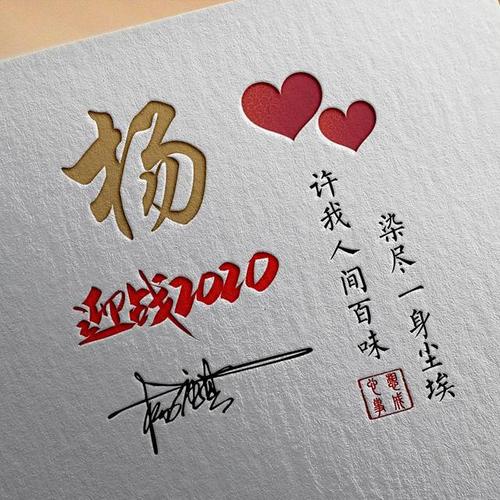 杨
迎战2020
许我人间百味
染尽一身尘埃
心想
事成